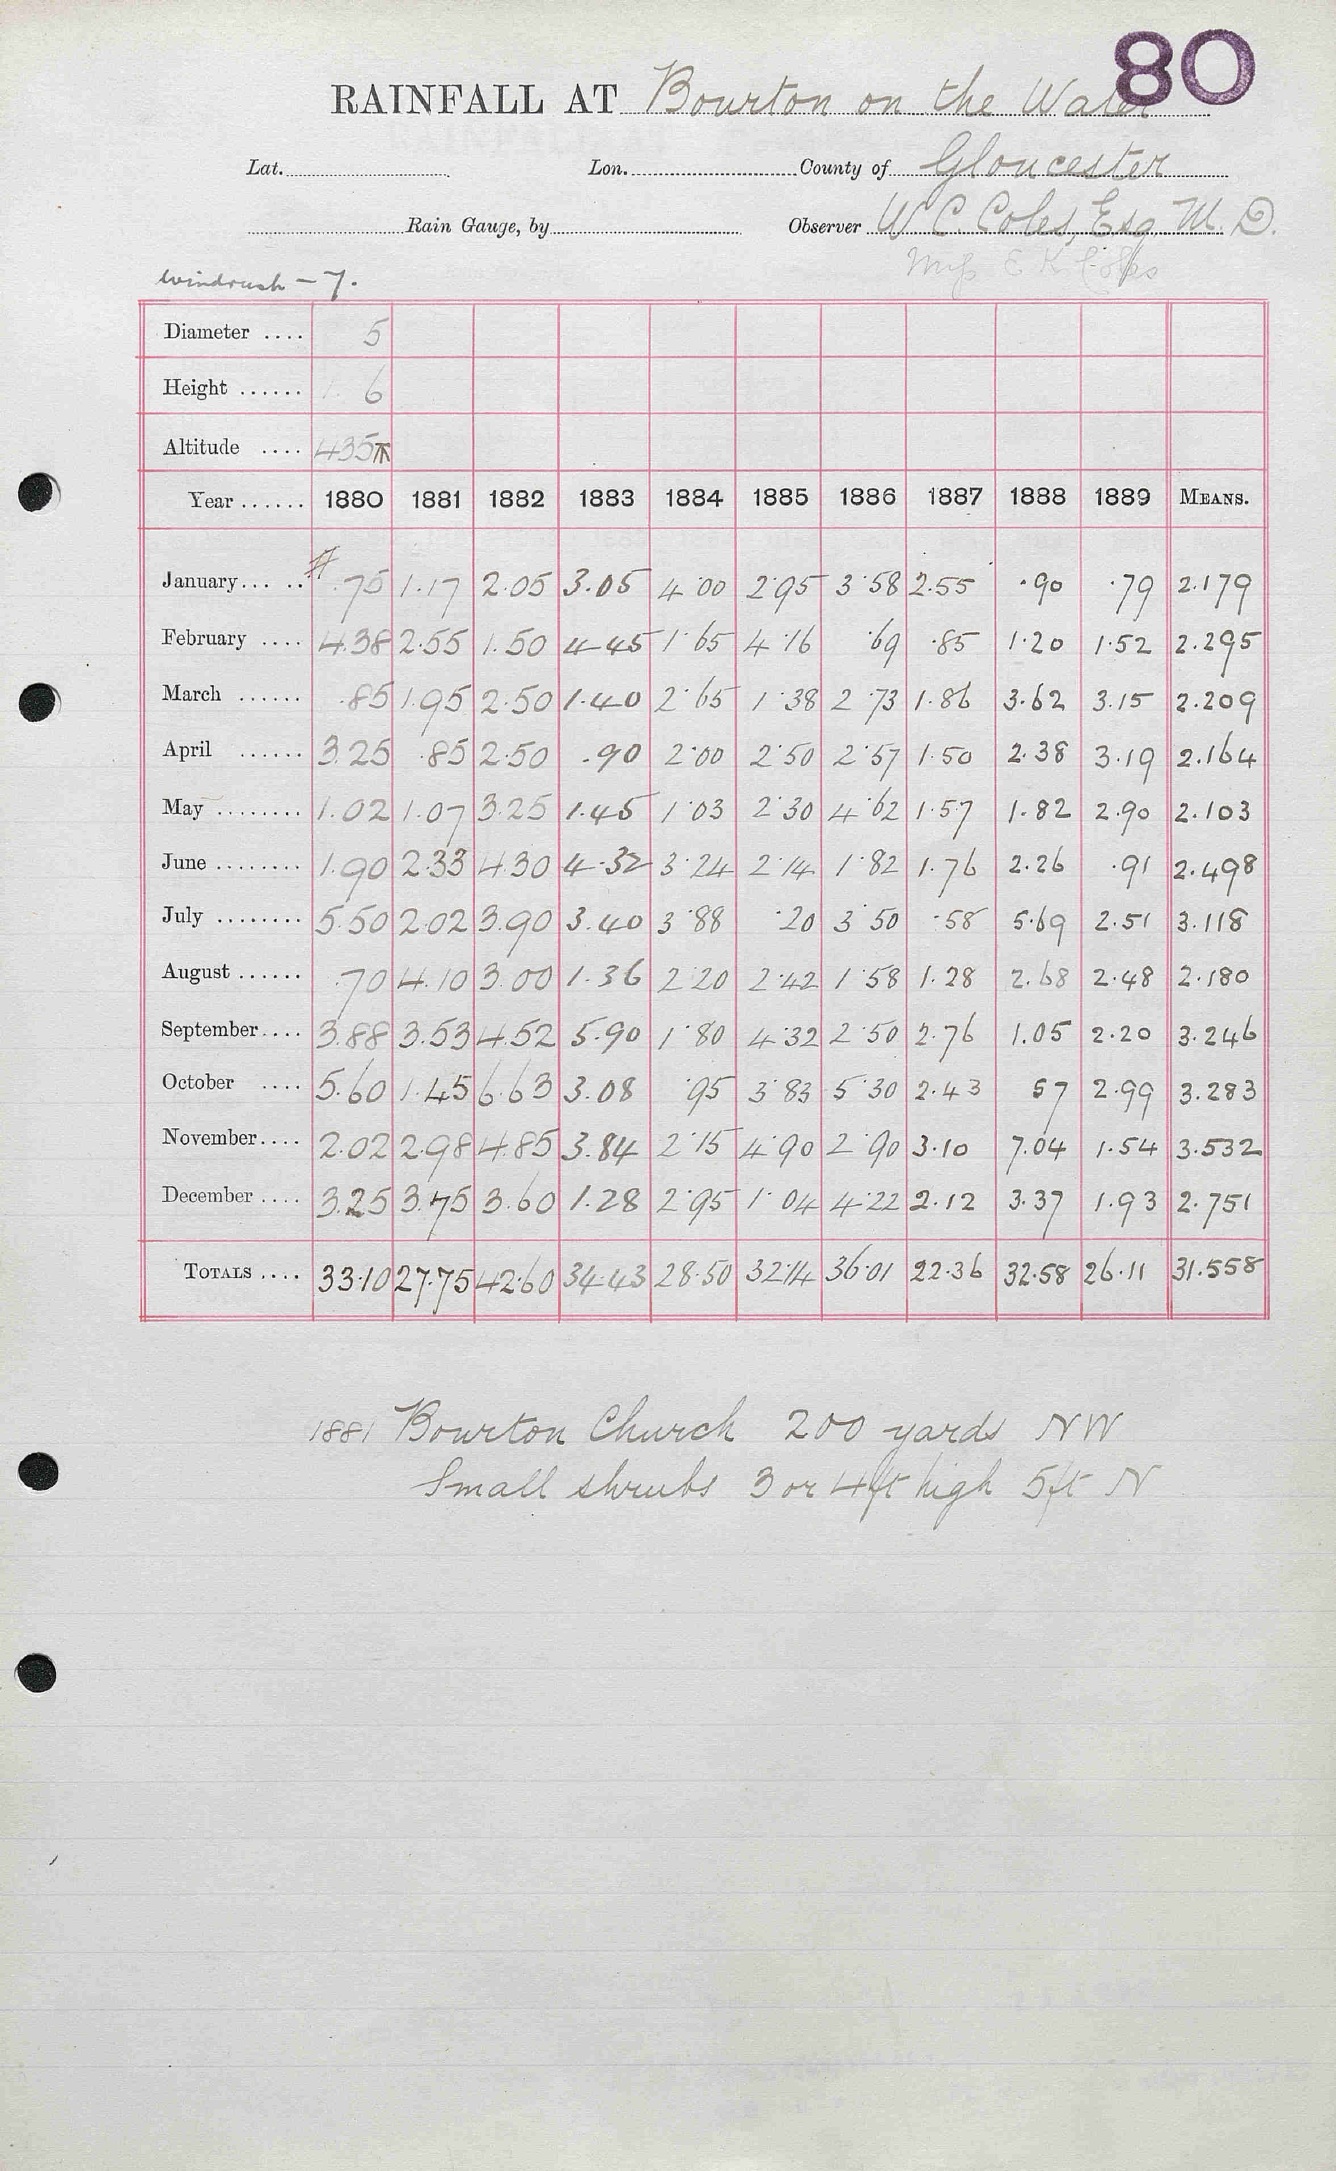 80
RAINFALL AT Bourton on the Water
Lat. Lon. County of Gloucester
Rain Gauge, by Observer W C. Coles, Esq M. D.
Miss E K Coles
Windrush - 7.
Diameter .... 5
Height ...... 6
Altitude .... 435
Year ...... 1880 1881 1882 1883 1884 1885 1886 1887 1888 1889 MEANS.
January... .. .75 1.17 2.05 3.05 4.00 2.95 3.58 2.55 .90 .79 2.179
February .... 4.38 2.55 1.50 4.45 1.65 4.16 .69 .85 1.20 1.52 2.295
March ...... .85 1.95 2.50 1.40 2.65 1.38 2.73 1.86 3.62 3.15 2.209
April ...... 3.25 .85 2.50 .90 2.00 2.50 2.57 1.50 2.38 3.19 2.164
May ........ 1.02 1.07 3.25 1.45 1.03 2.30 4.62 1.57 1.82 2.90 2.103
June ........ 1.90 2.33 4.30 4.32 3.24 2.14 1.82 1.76 2.26 .91 2.498
July ........ 5.50 2.02 3.90 3.40 3.88 .20 3.50 .58 5.69 2.51 3.118
August ...... .70 4.10 3.00 1.36 2.20 2.42 1.58 1.28 2.68 2.48 2.180
September.... 3.88 3.53 4.52 5.90 1.80 4.32 2.50 2.76 1.05 2.20 3.246
October .... 5.60 1.45 6.63 3.08 .95 3.83 5.30 2.43 57 2.99 3.283
November.... 2.02 2.98 4.85 3.84 2.15 4.90 2.90 3.10 7.04 1.54 3.532
December .... 3.25 3.75 3.60 1.28 2.95 1.04 4.22 2.12 3.37 1.93 2.751
TOTALS .... 33.10 27.75 42.60 34.43 28.50 32.14 36.01 22.36 32.58 26.11 31.558
1881 Bourton Church 200 yards NW
Small shrubs 3 or 4ft high 5ft N